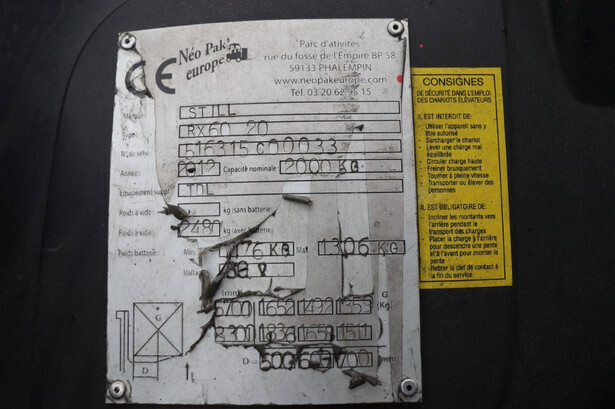 CE
Néo Pak' europe
Parc d'ativités
rue du fossé de l'Empire BP 58
59133 PHALEMPIN
www.neopakeurope.com
Tél. 03 20 62 96 15
STILL
RX60 20
N° de série 516315C00033
Année: 2012 Capacité nominale 2000KG
Equipement suppl TDL
Poids à vide: kg (sans batterie)
Poids à vide: 2480 kg (avec batterie)
Poids batterie: Min. Max 1306 KG
Volta
(mm) G
1652 1492 1359 (Kg)
3300 1836 1658 1511
G
D D = 500 600 700 (mm)
CONSIGNES
DE SÉCURITÉ DANS L'EMPLOI
DES CHARIOTS ÉLÉVATEURS
IL EST INTERDIT DE:
- Utiliser l'appareil sans y
être autorisé
- Surcharger le chariot
- Lever une charge mal
équilibrée
- Circuler charge haute
- Freiner brusquement
- Tourner à pleine vitesse
- Transporter ou élever des
personnes
IL EST OBLIGATOIRE DE:
- Incliner les montants vers
l'arrière pendant le
transport des charges
- Placer la charge à l'arrière
pour descendre une pente
et à l'avant pour monter la
pente
- Retirer la clef de contact à
la fin du service